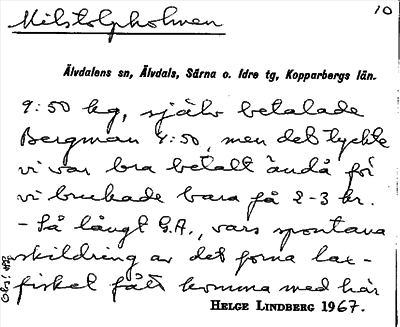 Milstolpholmen
10
Älvdalens sn, Älvdals, Särna o. Idre tg, Kopparbergs län.
9:50 kg, själv betalade
Bergman 4:50, men det tyckte
vi var bra betalt ändå för
vi brukade bara få 2-3 kr.
- Så långt G.A., vars spontana
skildring av det forna lax-
fisket fått komma med här
Obs!
HELGE LINDBERG 1967.